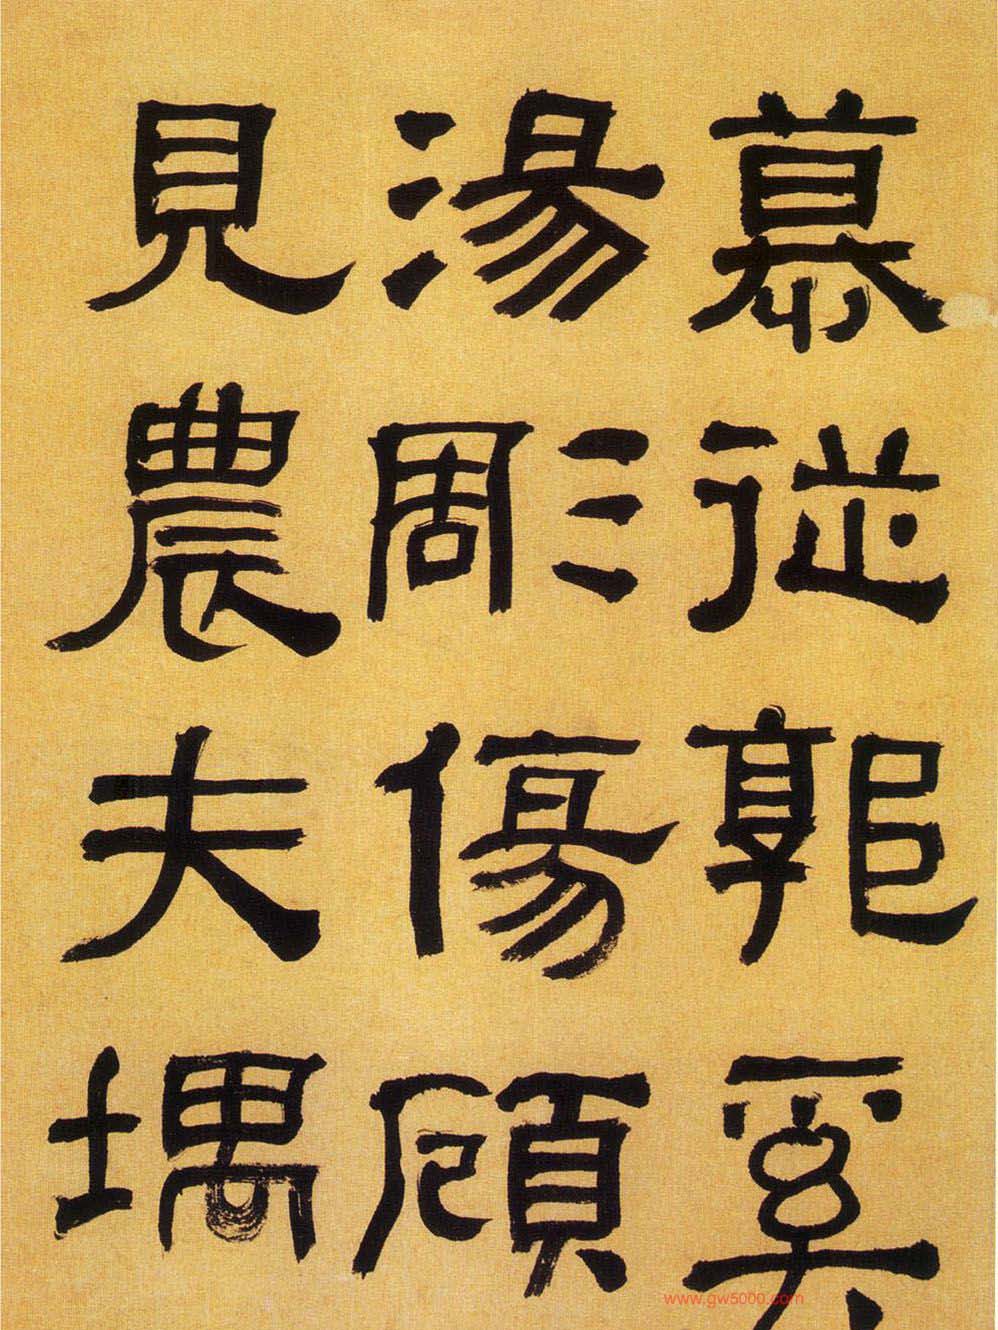 慕從郭奚
湯彫傷頋
見農夫堣
www.gw5000.com